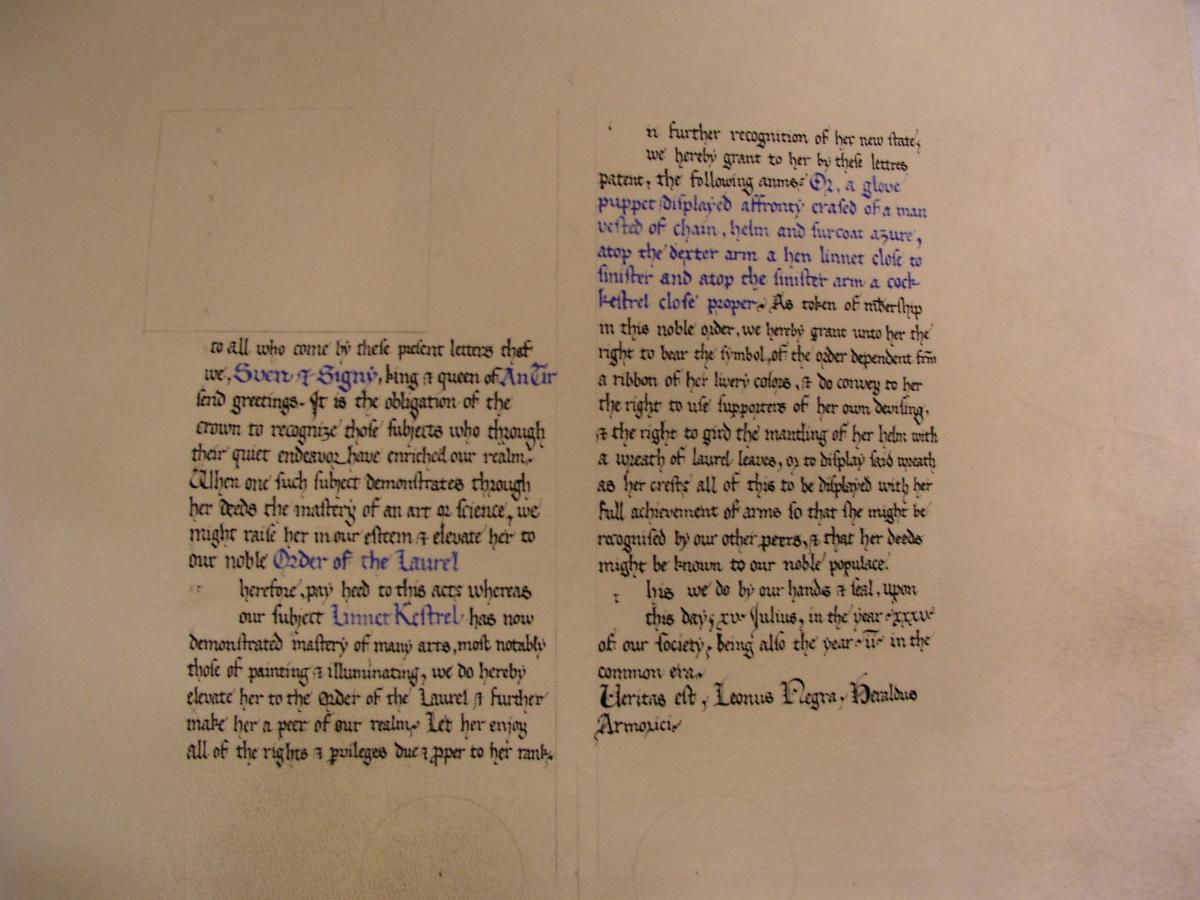 to all who come by these present letters that
we, Sven & Signy, king & queen of An Tir
send greetings. It is the obligation of the
crown to recognize those subjects who through
their quiet endeavor have enriched our realm.
When one such subject demonstrates through
her deeds the mastery of an art or science, we
might raise her in our esteem & elevate her to
our noble Order of the Laurel
herefore, pay heed to this act: whereas
our subject Linnet Kestrel has now
demonstrated mastery of many arts, most notably
those of painting & illuminating, we do hereby
elevate her to the Order of the Laurel & further
make her a peer of our realm. Let her enjoy
all of the rights & pvileges due & pper to her rank.
n further recognition of her new state,
we hereby grant to her by these lettres
patent, the following arms: Or, a glove
puppet displayed affronty erased of a man
vested of chain, helm and surcoat azure,
atop the dexter arm a hen linnet close to
sinister and atop the sinister arm a cock
kestrel close proper. As token of mbership
in this noble order, we hereby grant unto her the
right to bear the symbol of the order dependent frm
a ribbon of her livery colors, & do convey to her
the right to use supporters of her own devising,
& the right to gird the mantling of her helm with
a wreath of laurel leaves, or to display said wreath
as her crest; all of this to be displayed with her
full achievement of arms so that she might be
recognised by our other peers, & that her deeds
might be known to our noble populace.
t his we do by our hands & seal, upon
this day, xv Julius, in the year xxxv
of our society, being also the year ii in the
common era.
Veritas est, Leonus Negra, Heraldus
Armorici